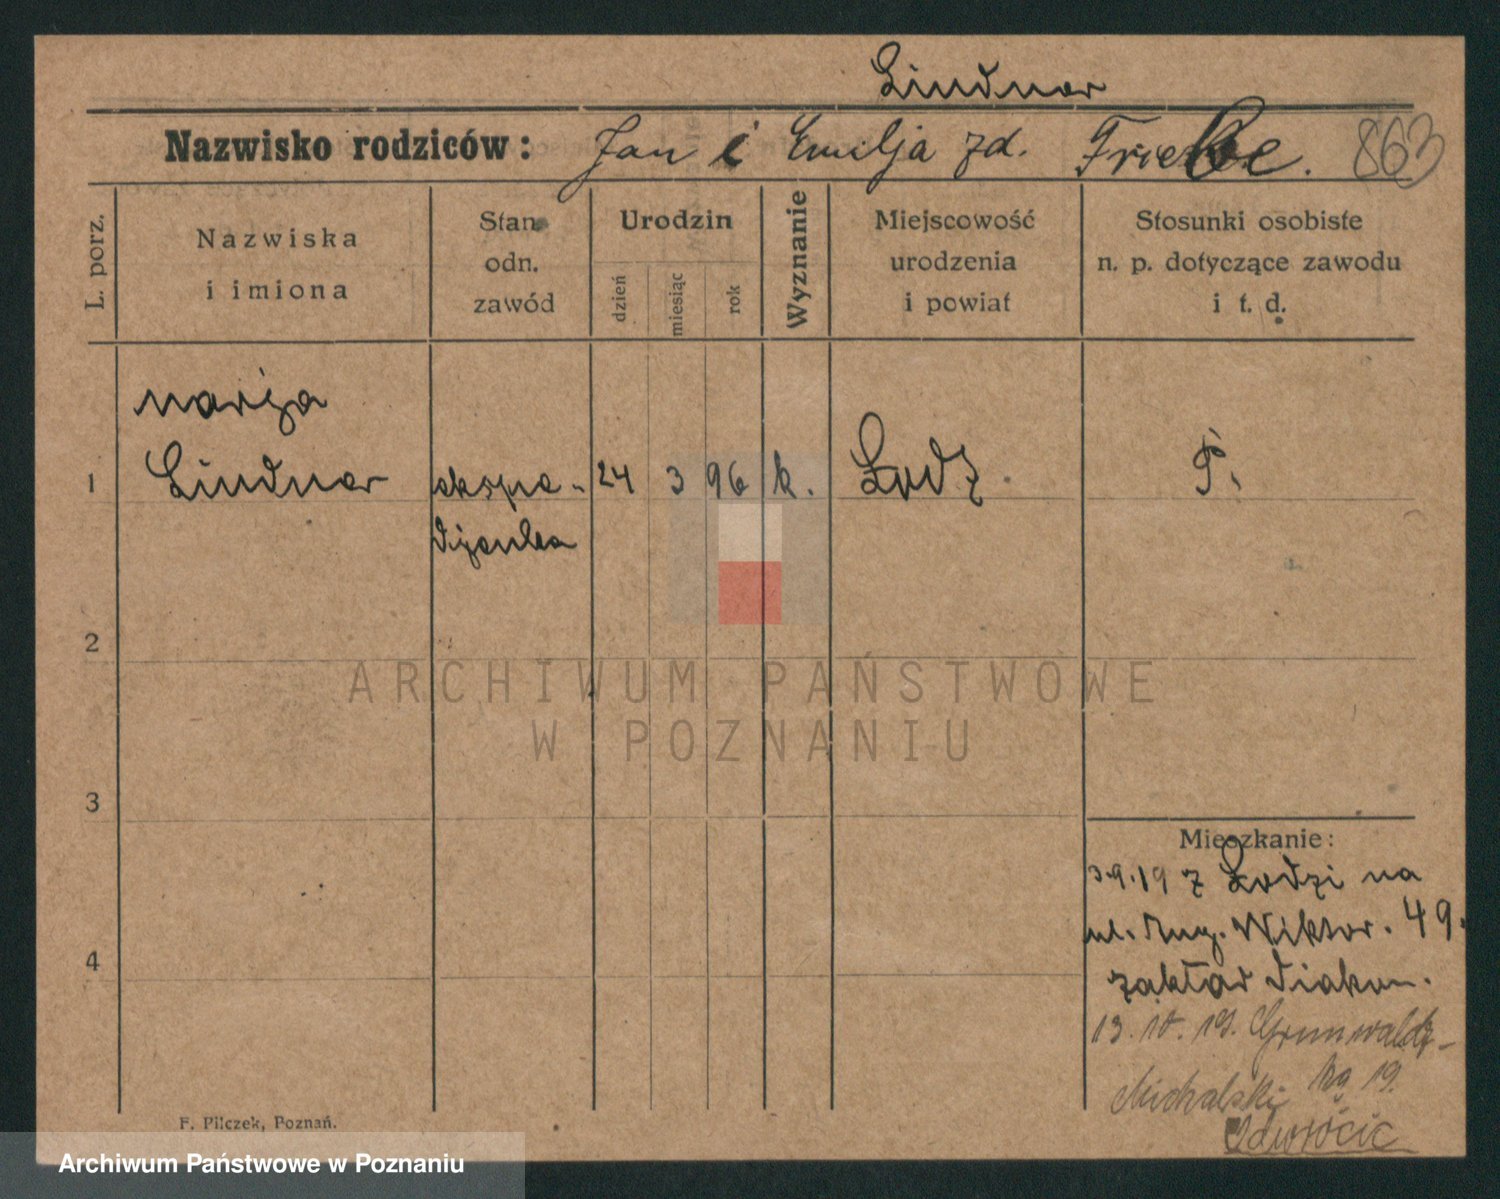 Lindner
Nazwisko rodziców: Jan i Emilja zd. Friebe. 863
L. porz.
Nazwiska
i imiona
Stan
odn.
zawód
Urodzin
dzień
miesiąc
rok
Wyznanie
Miejscowość
urodzenia
i powiat
Stosunki osobiste
n. p. dotyczące zawodu
i t. d.
Marja
1 Lindner ekspe- 24 3 96 k. Łodz P.
djenka
2
3
4
Mieszkanie:
3.9.19 z Łodzi na
ul. Aug. Wiktor. 49.
zakład diakon.
13. 10. 19. Grunwaldz-
ka 19.
Michalski
Odwrócić
F. Pilczek, Poznań.
ARCHIWUM PAŃSTWOWE
W POZNANIU
Archiwum Państwowe w Poznaniu